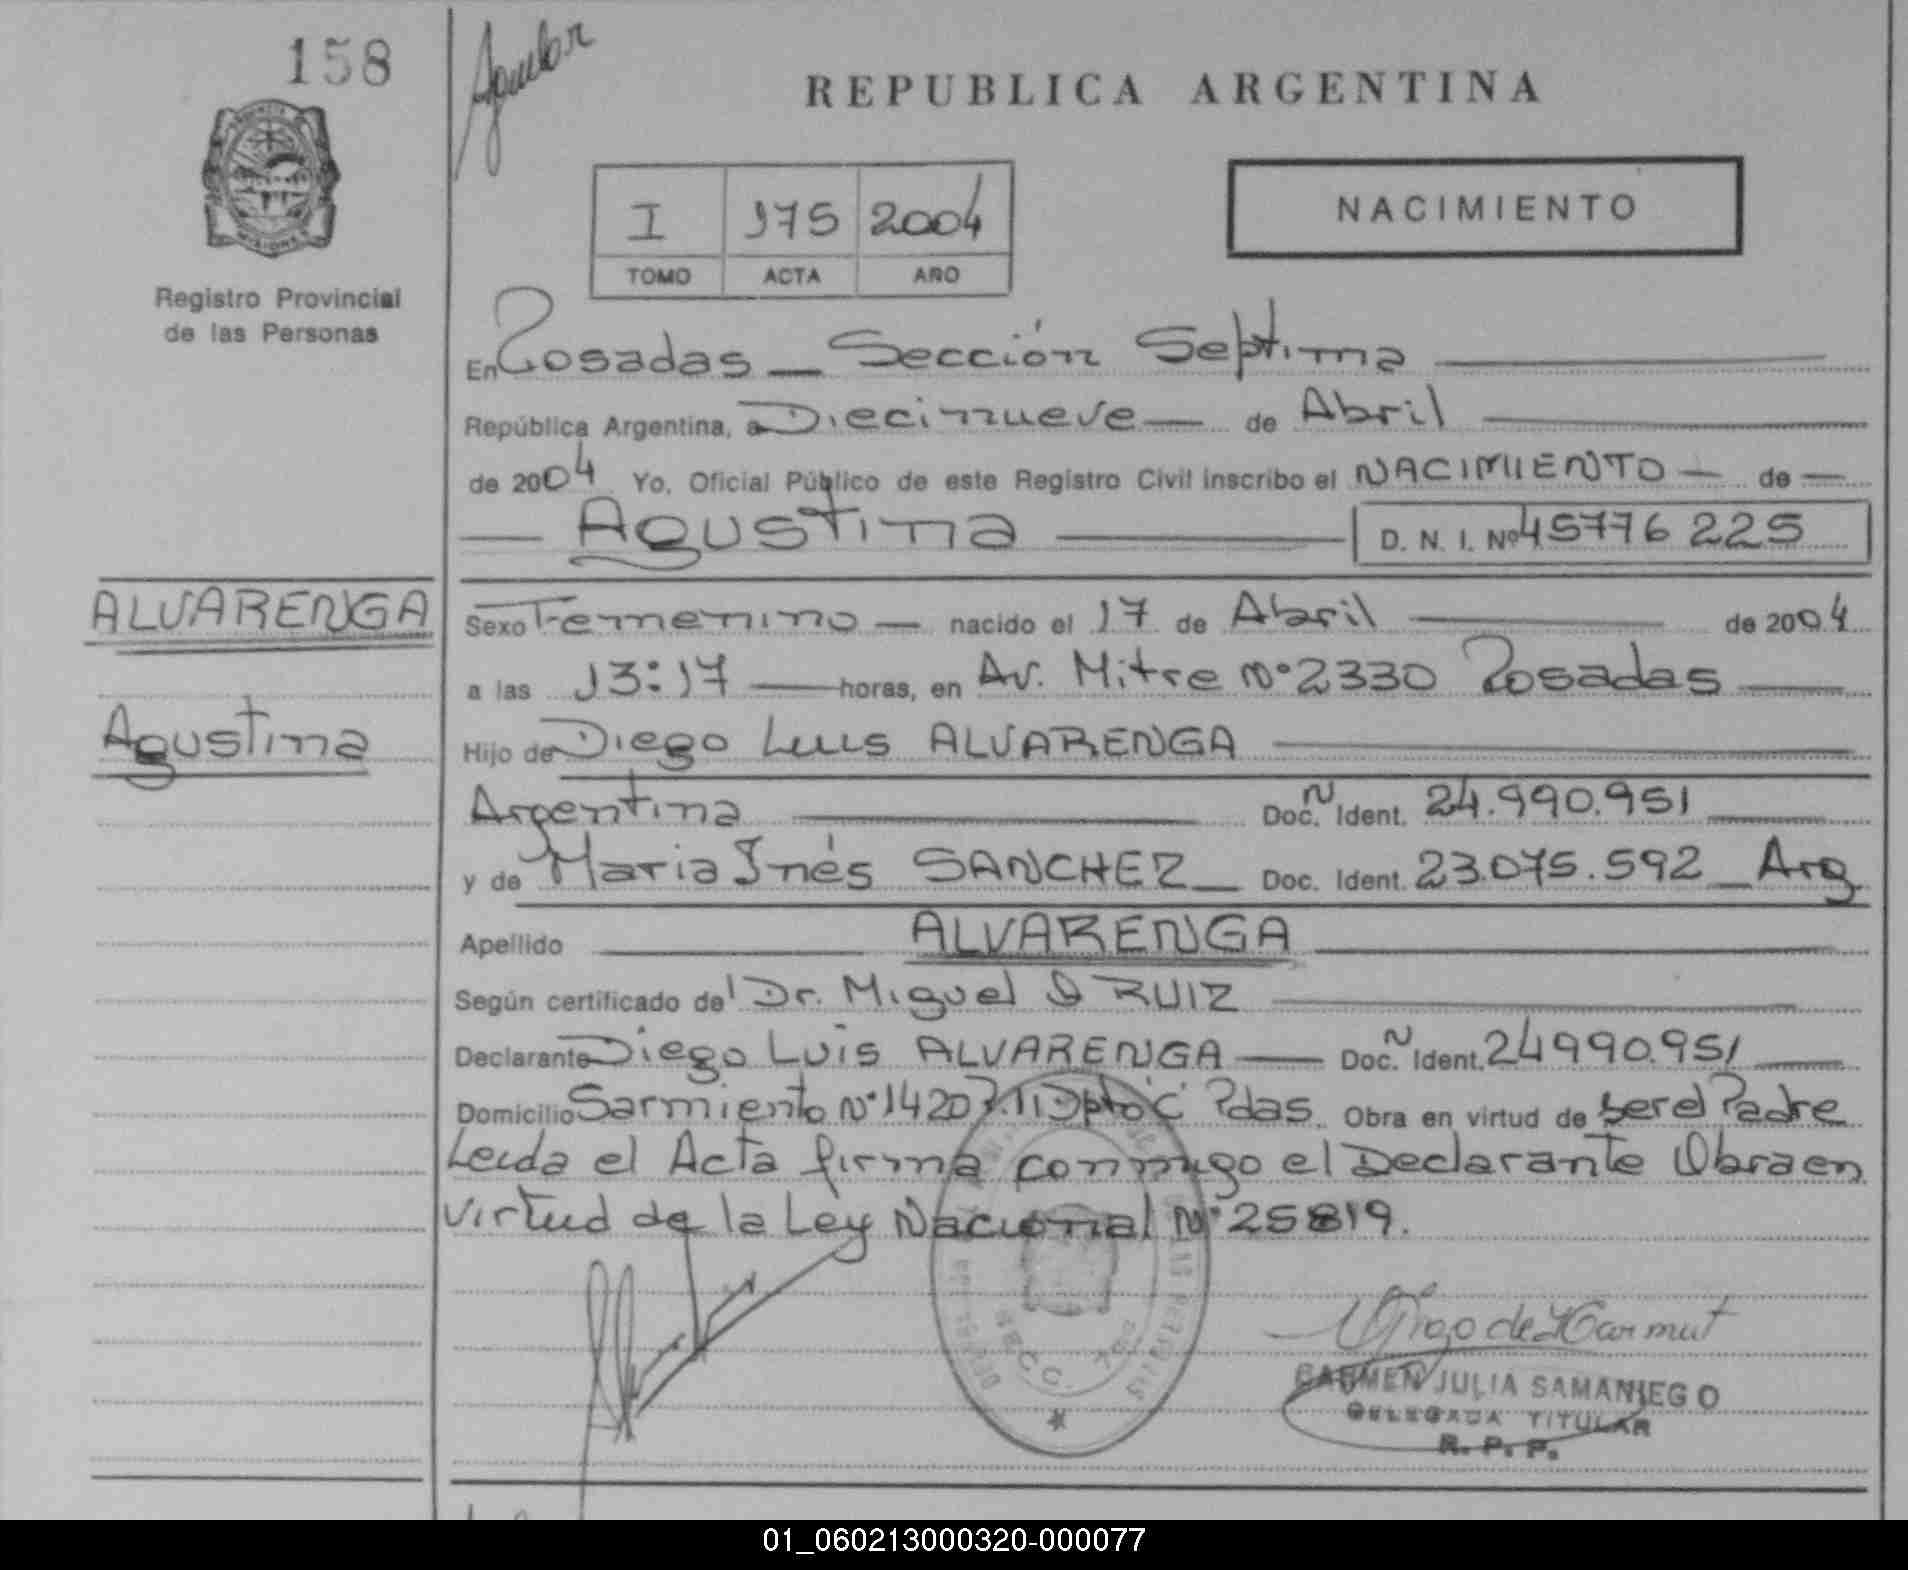 158
Registro Provincial
de las Personas
REPUBLICA ARGENTINA
I 175 2004
TOMO ACTA AÑO
NACIMIENTO
En Posadas _ Sección Septima
República Argentina, a Diecinueve de Abril
de 2004 Yo, Oficial Público de este Registro Civil inscribo el NACIMIENTO de
Agustina D. N. I. Nº 45776 225
ALVARENGA
Agustina
Sexo Femenino nacido el 17 de Abril de 2004
a las 13:17 horas, en Av. Mitre Nº 2330 Posadas
Hijo de Diego Luis ALVARENGA
Argentina Doc. N Ident. 24.990.951
y de Maria Inés SANCHEZ Doc. Ident. 23.075.592 _ Arg
Apellido ALVARENGA
Según certificado de Dr. Miguel RUIZ
Declarante Diego Luis ALVARENGA Doc. N Ident. 24990.951
Domicilio Sarmiento Nº 1420 Dpto C Pdas. Obra en virtud de ser el Padre
Leida el Acta firma conmigo el Declarante Obra en
virtud de la Ley Nacional Nº 25819.
CARMEN JULIA SAMANIEGO
DELEGADA TITULAR
R. P. P.
01_060213000320-000077